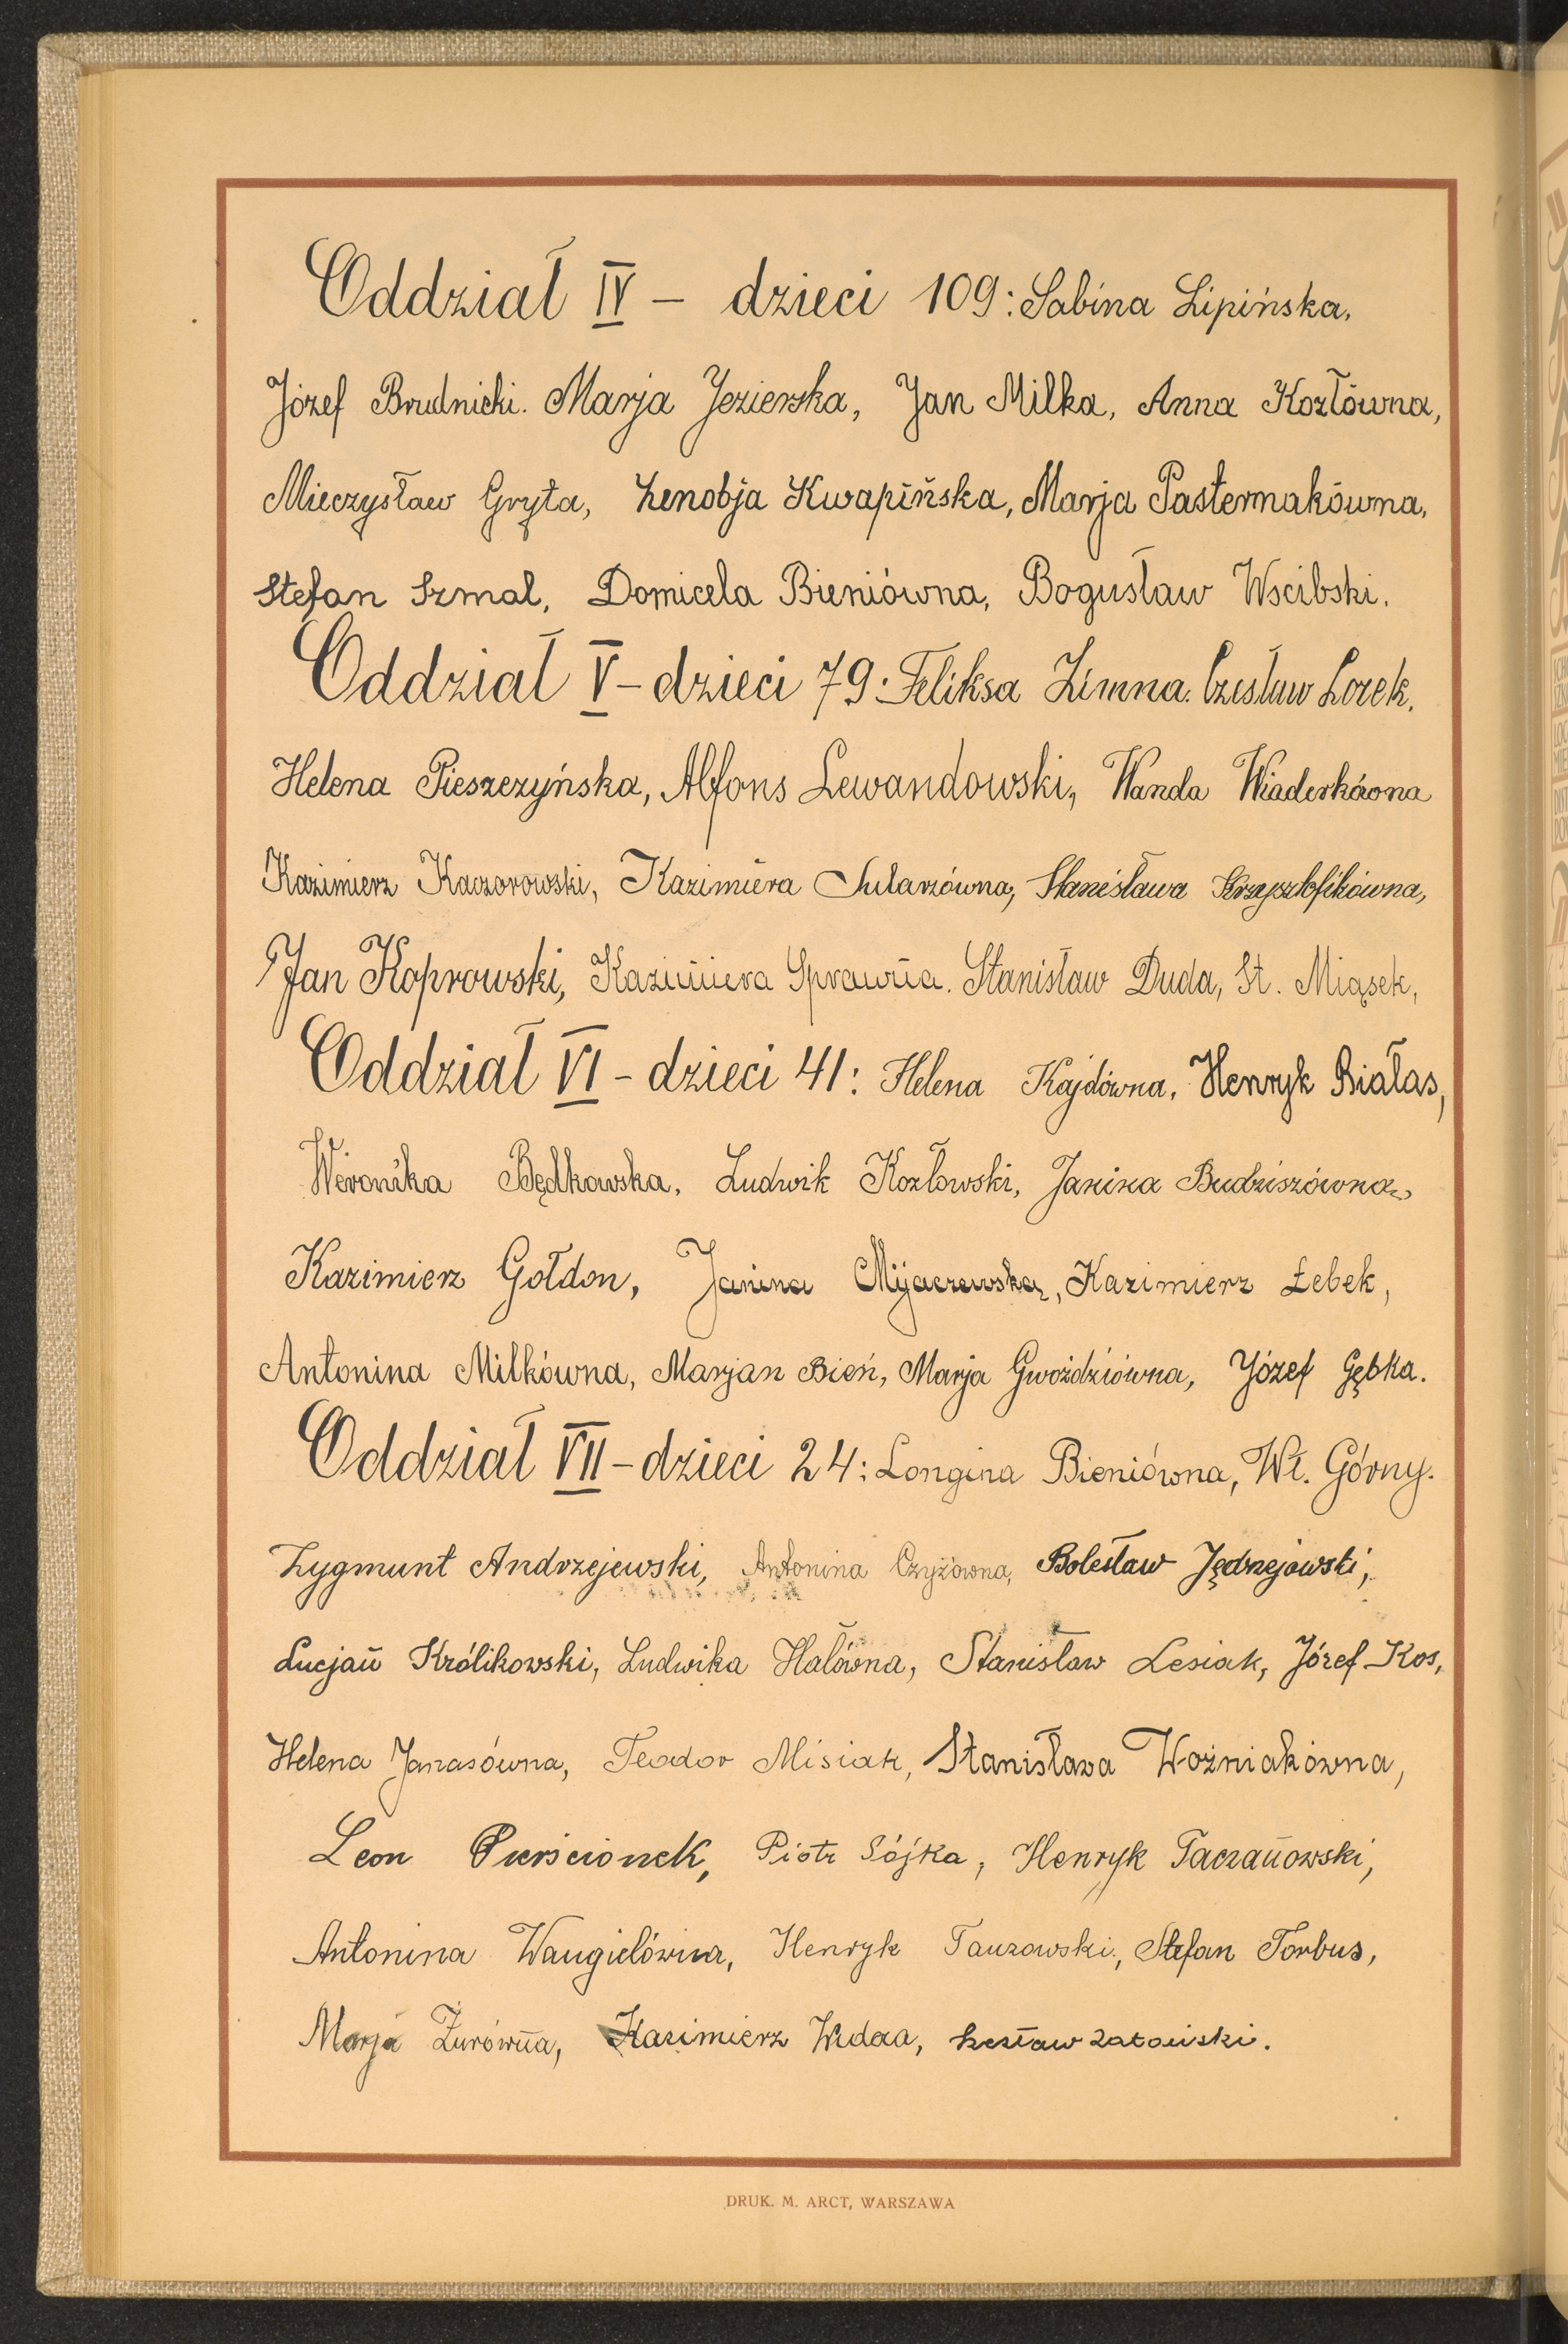 Oddział IV – dzieci 109: Sabina Lipińska,
Józef Brudnicki. Marja Jezierska, Jan Milka, Anna Kozłówna,
Mieczysław Gryta, Zenobja Kwapińska, Marja Pasternakówna,
Stefan Szmal, Domicela Bieniówna, Bogusław Wscibski.
Oddział V – dzieci 79: Feliksa Zimna. Czesław Lorek.
Helena Pieszczyńska, Alfons Lewandowski, Wanda Wiaderkówna
Kazimierz Kaczorowski, Kazimiera Sularzówna, Stanisława Krzysztofikówna,
Jan Koprowski, Kazimiera Sprawna. Stanisław Duda, St. Miąsek,
Oddział VI – dzieci 41: Helena Kajdówna, Henryk Białas,
Weronika Będkowska, Ludwik Kozłowski, Janina Budziszówna,
Kazimierz Gołdon, Janina Mijaczewska, Kazimierz Łebek,
Antonina Milkówna, Marjan Bień, Marja Gwoździówna, Józef Gębka.
Oddział VII – dzieci 24: Longina Bieniówna, Wł. Górny.
Zygmunt Andrzejewski, Antonina Czyżówna, Bolesław Jędrzejowski,
Lucjan Królikowski, Ludwika Hałówna, Stanisław Lesiak, Józef Kos,
Helena Janasówna, Teodor Misiak, Stanisława Woźniakówna,
Leon Pierścionek, Piotr Sójka, Henryk Taczanowski,
Antonina Waugielówna, Henryk Tauzowski, Stefan Torbus,
Marja Żurówna, Kazimierz Widaa,
DRUK. M. ARCT, WARSZAWA